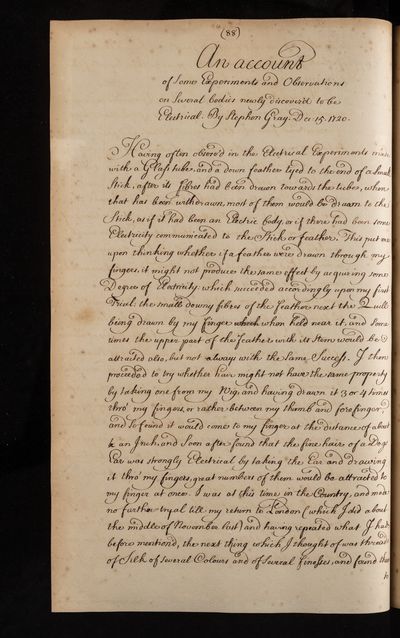 (88)
An account
of Some Experiments and Observations
on Several bodies newly discovered to be
Electrical. By Stephen Gray. Dec 15. 1720.
Having often observ'd in the Electrical Experiments made
with a Glass tube, and a down feather tyed to the end of a Small
Stick, after its fibres had been drawn towards the tube, when
that has been withdrawn, most of them would be drawn to the
Stick, as if it had been an Electric body, or if there had been some
Electricity communicated to the Stick or feather. This put me
upon thinking whether if a feather were drawn through my
fingers, it might not produce the same effect by acquiring some
Degree of Electricity, which succeeded accordingly upon my first
Tryal. the small downy fibres of the Feather next the Quill
being drawn by my finger when held near it, and Some
times the upper part of the Feather with its Stem would be
attracted also, but not always with the Same Success. I then
proceeded to try whether hair might not have the same property
by taking one from my Wig, and having drawn it 3 or 4 times
thro' my fingers, or rather between my thumb and forefinger
and So found it would come to my finger at the distance of about
½ an Inch, and Soon after found that the fine hairs of a Dog's
Ear was strongly Electrical by taking the Ear and drawing
it thro' my fingers, great numbers of them would be attracted to
my finger at once. I was at this time in the Country, and made
no further tryal till my return to London (which I did about
the middle of November last) and having repeated what I had
before mention'd, the next thing which I thought of was threads
of Silk of Several Colours and of Several finesses, and found